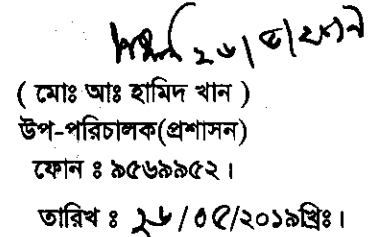 ২৬/৫/২০১৯
( মোঃ আঃ হামিদ খান )
উপ-পরিচালক(প্রশাসন)
ফোন ঃ ৯৫৬৯৯৫২।
তারিখ ঃ ২৬/০৫/২০১৯খ্রিঃ।